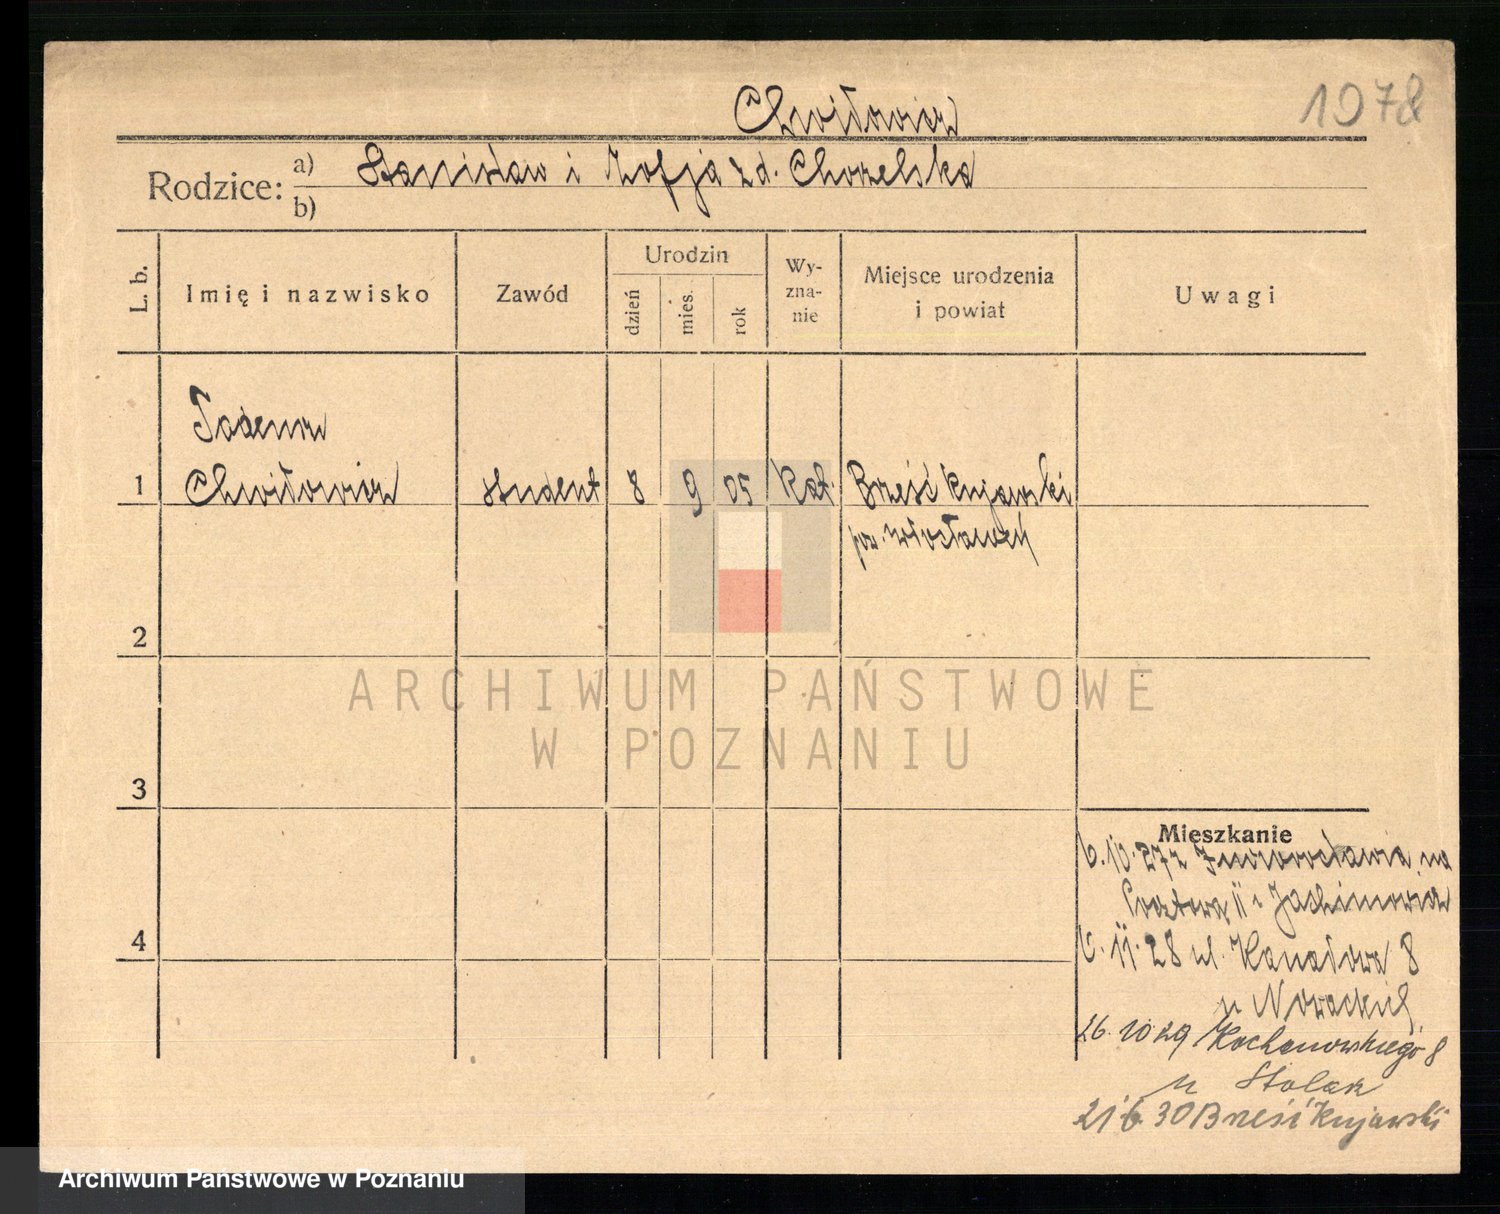 Chwiłowicz
1978
Rodzice: a) Stanisław i Zofja z d. Chorzelska
b)
L. b. Imię i nazwisko Zawód Urodzin dzień mies. rok Wy-zna-nie Miejsce urodzenia i powiat Uwagi
Tadeusz
1 Chwiłowicz student 8 9 05 kat. Brześć kujawski
pow. Włocławek
2
ARCHIWUM PAŃSTWOWE
W POZNANIU
3
Mieszkanie
6.10.27 z Inowrocławia na
Pocztową 11 Jachimowicz
4
6.11.28 ul. Kanałowa 8
u Nowackich
26.10 29 Kochanowskiego 8
u Stolak
21 6. 30 Brześć Kujawski
Archiwum Państwowe w Poznaniu